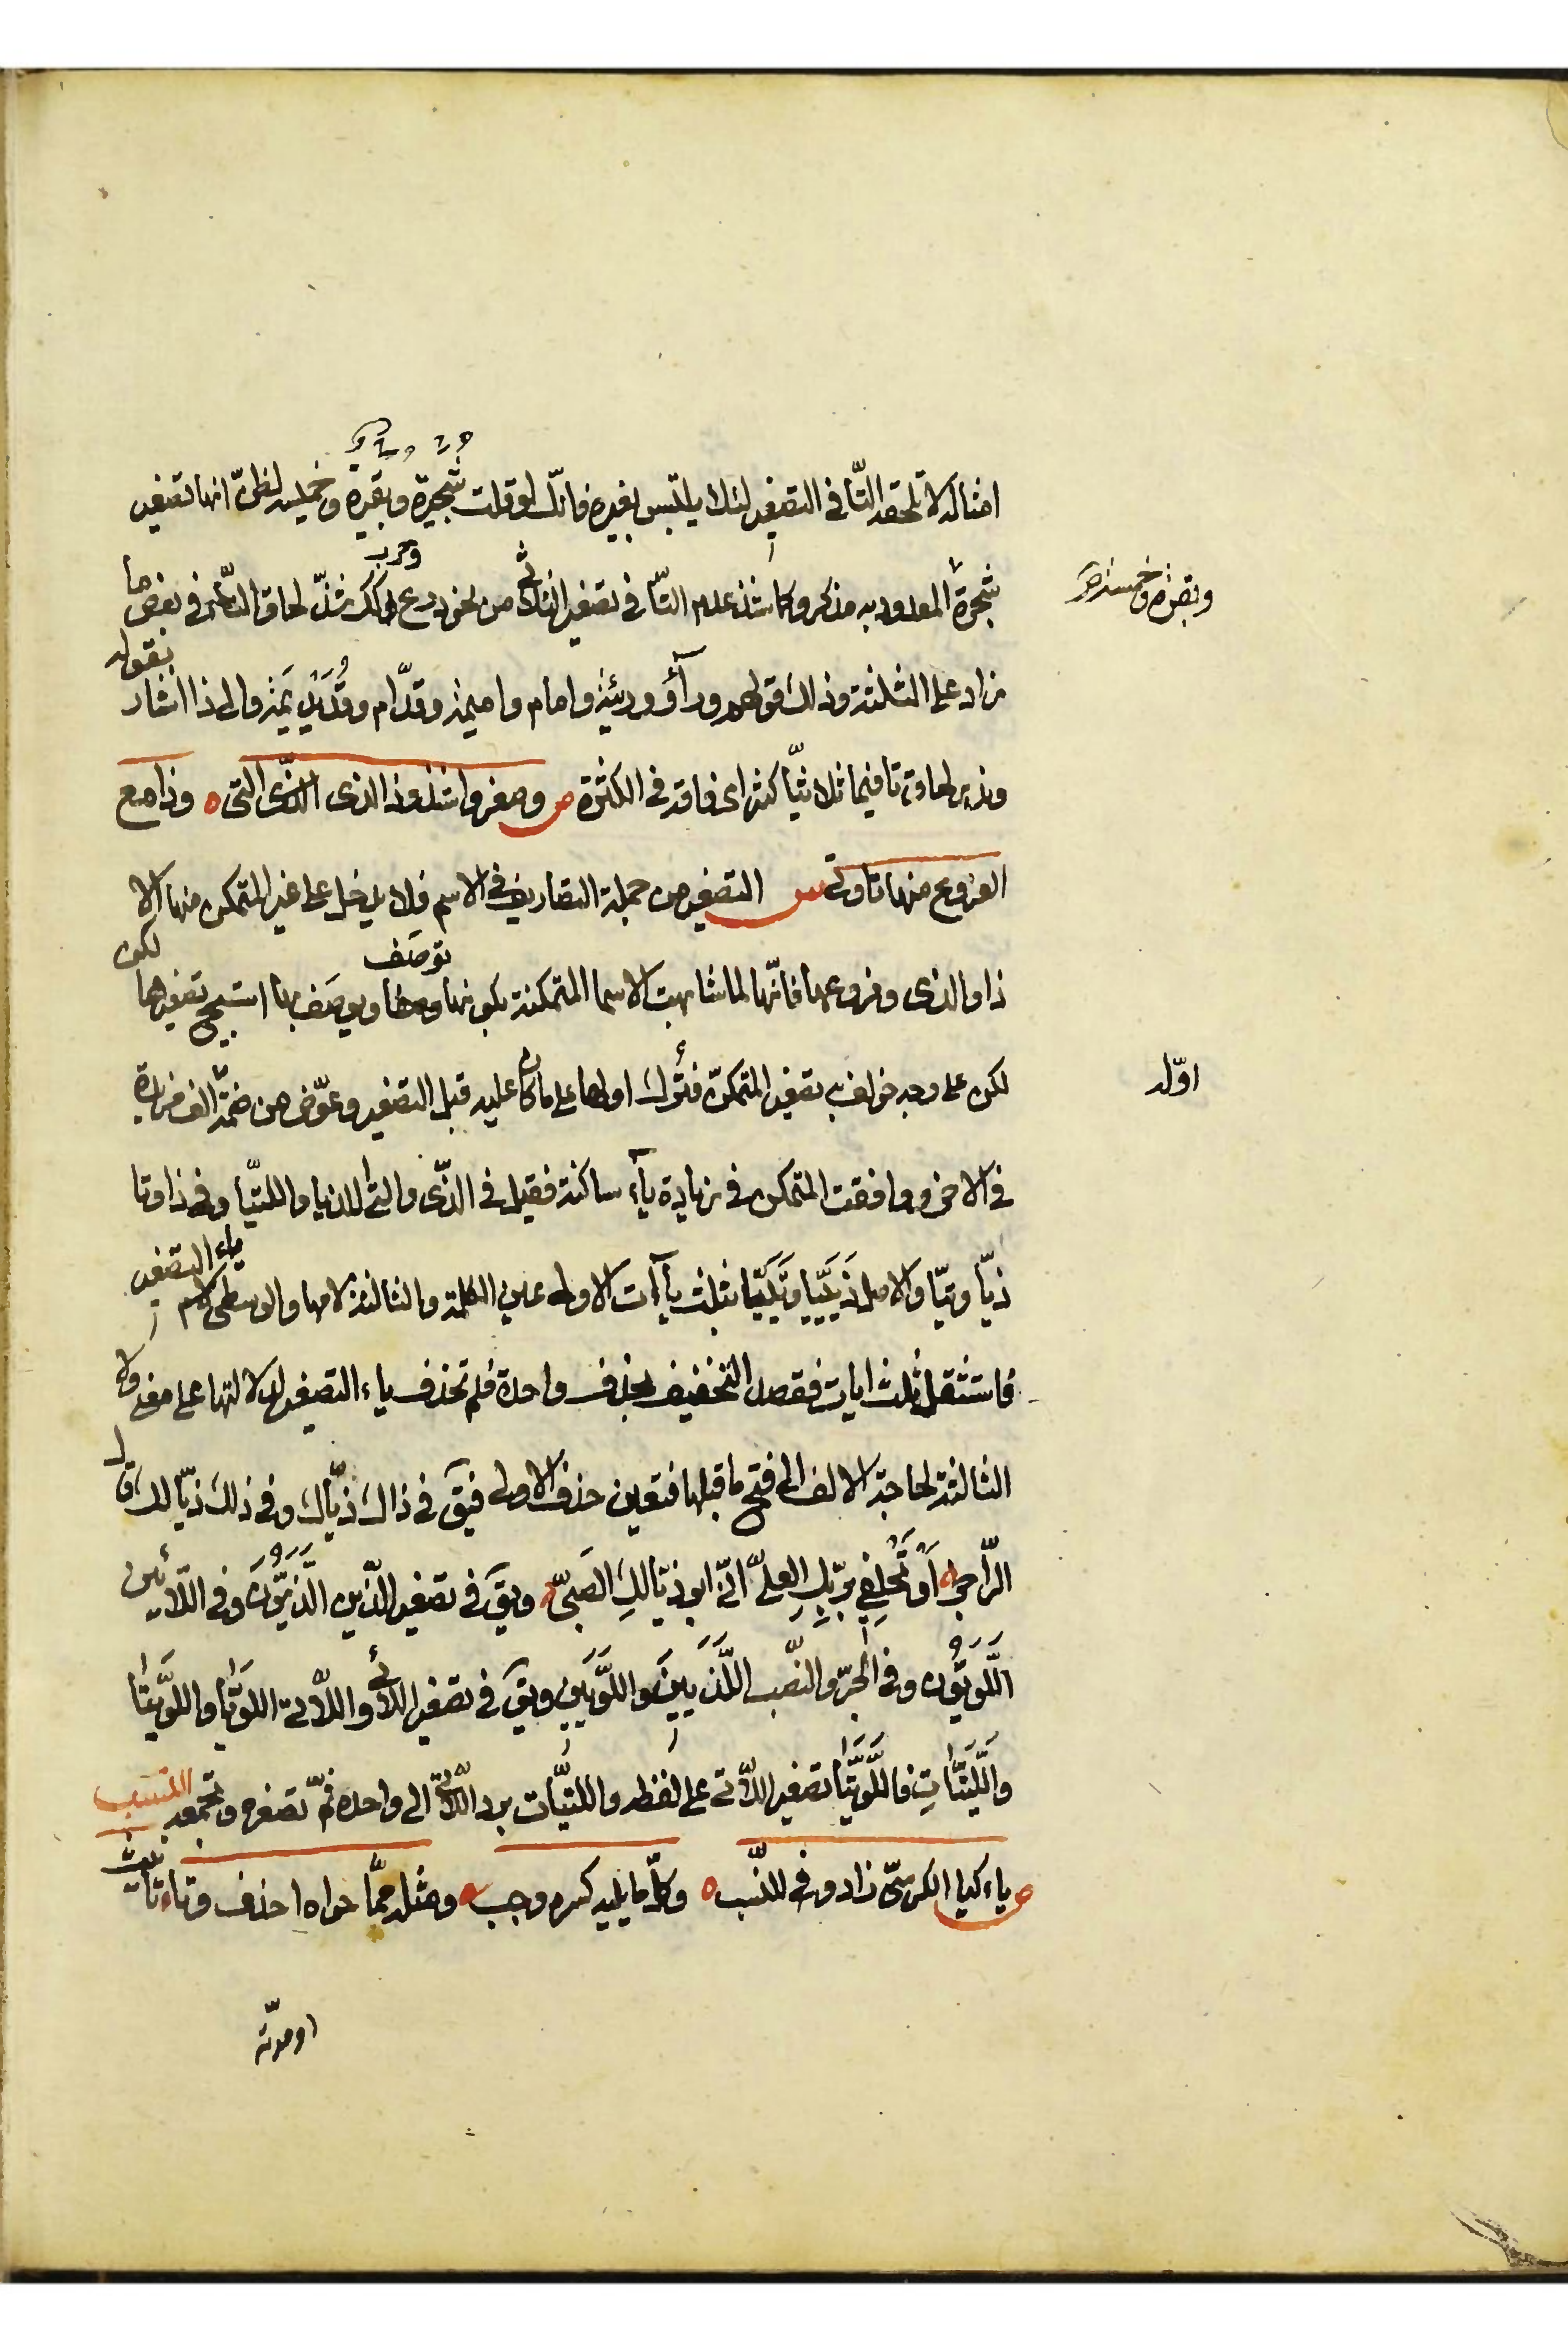 امثاله لا تلحقه التّا في التصغير لئلا يلتبس بغيره فانّك لو قلت شجيرة وبقيرة وخميسة لظنّ انها تصغير
شجرة المعدود به مذكر وكما شذ عدم التّا في تصغير الثلاثي من نحو درع وحرب كذلك شذّ لحاق التّا في بعض ما
وبقرة وخمسة
زاد على الثلثة وذلك قولهم ورآؤ ووريّئة وامام واميمة وقدّام وقُدَيْدِيمة والى ذا اشار بقوله
وندر لحاق تا فيما ثلاثيّا كثر اى فاقه في الكثرة ص وصغروا شذوذا الذى الذّى التى ه وذا مع
الفروع منها تا وتى س التصغير من جملة التصاريف في الاسم فلا يدخل على غير المتمكن منها الا
ذا والذى وفروعهما فانّها لما شابهت الاسما المتمكنة بكونها توصف ويوصف بها استبيح تصغيرها لكن
لكن على وجه خولف به تصغير المتمكن فتُرك اولها على ما كان عليه قبل التصغير وعوّض من ضمّه الف مزيدة
اوّله
في الاخر ووافقت المتمكن في زيادة ياء ساكنة فقيل في الذّى والتى اللذيا واللتيّا وفي ذا وتا
ذيّا وتيّا والاصل ذَيَيَّا وتَيَيَّا بثلث يآءات الاولى عين الكلمة والثالثة لامها والوسطى ياء التصغير
فاستثقل ثلث ايات فقصد التخفيف بحذف واحدة فلم تحذف ياء التصغير لدلالتها على معنى ولا
الثالثة لحاجة الالف الى فتح ما قبلها فتعين حذف الاولى فيق في ذاك ذيّاك وفي ذلك ذيّالك قال
الرّاجز اَوْ تَحْلِفِي بربّكِ العليّ انّى ابو ذيّالكِ الصَبيّ ويق في تصغير الّذين الّذيّون وفي اللّائين
اللّويّون وفي الجرّ والنّصب اللَّذَيين واللَّوَيين ويق في تصغير اللّائى واللّاتى اللوَيّا واللوَيتا
واللَّتيَّاتِ فاللَّوَيتا تصغير اللّاتى على لفظه واللتيّات برد اللّاتى الى واحده ثمّ تصغره وتجمعه النسب
ص ياء كيا الكرسىّ زادو في للنّسب ه وكلّ ما يليه كسره وجب ه ومثله ممّا حواه احذف وتاء تانيث
او مدّته